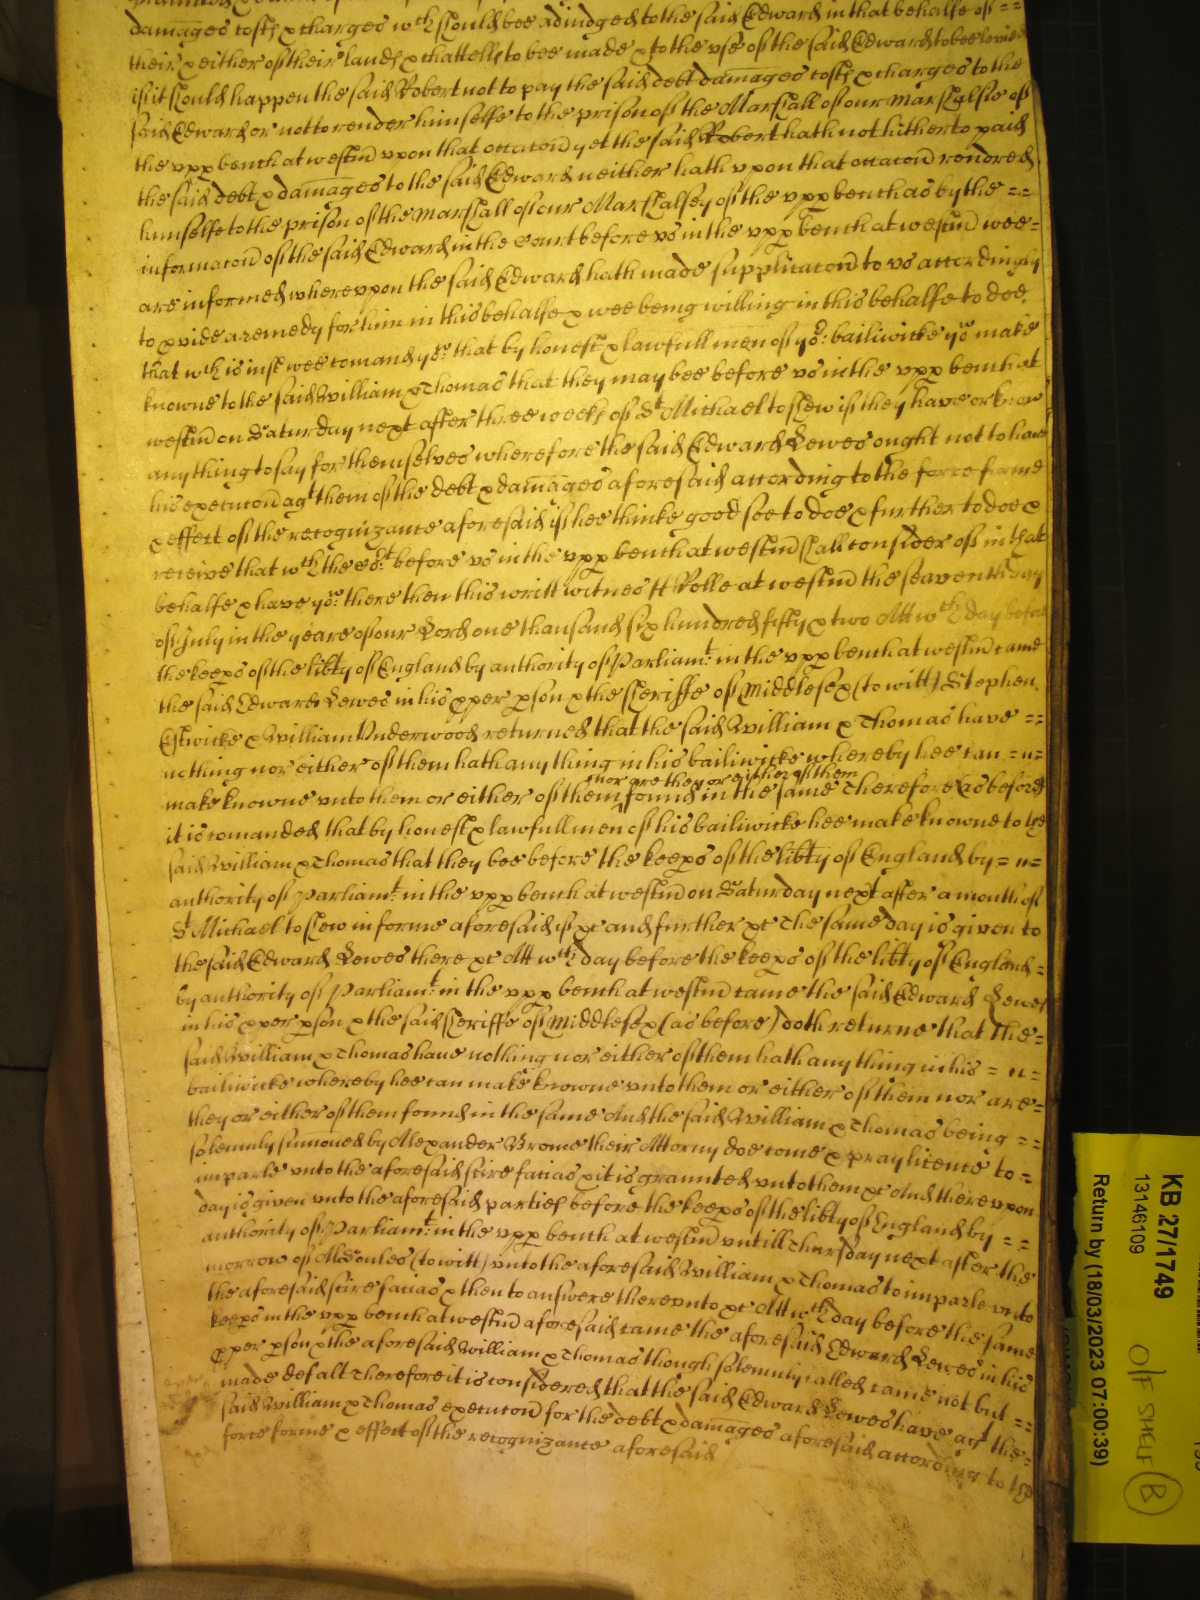 damages costs & charges wch should bee adiudged to the said Edward in that behalfe of ==
their & either of their lands & chattells to bee made & to the vse of the said Edward to bee levied
if it should happen the said Robert not to pay the said debt damages costs & charges to the
said Edward or not to render himselfe to the prison of the Marshall of our Marshalsie of
the vpp bench at westm̄ vpon that occac̄on yet the said Robert hath not hitherto paid
the said debt & damages to the said Edward neither hath vpon that occac̄on rendred
himselfe to the prison of the Marshall of our Marshalsey of the vpp bench as by the ==
informac̄on of the said Edward in the Court before vs in the vpp bench at westm̄ wee =
are informed wherevpon the said Edward hath made supplicac̄on to vs accordingly
to pvide a remedy for him in this behalfe & wee being willing in this behalfe to doe
that wch is iust wee com̄and yow that by honest & lawfull men of yor: bailiwicke yow make
knowne to the said William & Thomas that they may bee before vs in the vpp bench at
westm̄ on Saturday next after three weeks of St Michael to shew if they have or know
any thing to say for themselves wherefore the said Edward Lewes ought not to have
his execuc̄on agt them of the debt & damages aforesaid according to the force forme
& effect of the recognizance aforesaid if hee thinke good soe to doe & further to doe &
receive that wch the Cort before vs in the vpp bench at westm̄ shall consider of in that
behalfe & have yow there then this writt witnes H Rolle at westm̄ the seaventh day
of July in the yeare of our Lord one thousand six hundred fifty & two Att wch day before
the keeps of the libty of England by authority of Parliamt: in the vpp bench at westm̄ came
the said Edward Lewes in his pper pson & the sheriffe of Middlesex (to witt) Stephen
Estwicke & William Vnderwood returned that the said William & Thomas have ==
nothing nor either of them hath any thing in his bailiwicke whereby hee can =n=
nor are they or either of them
make knowne vnto them or either of them found in the same Therefore (as before)
it is com̄anded that by honest & lawfull men of his bailiwicke hee make knowne to the
said William & Thomas that they bee before the keeps of the libty of England by =n=
authority of Parliamt: in the vpp bench at westm̄ on Saturday next after a month of
St Michael to shew in forme aforesaid if &c and further &c The same day is given to
the said Edward Lewes there &c Att wch day before the keeps of the libty of England =
by authority of Parliamt: in the vpp bench at westm̄ came the said Edward Lewes
in his pper pson & the said sheriffe of Middlesex (as before) doth returne that the =
said William & Thomas have nothing nor either of them hath any thing in his =n=
bailiwicke whereby hee can make knowne vnto them or either of them nor are =
they or either of them found in the same And the said William & Thomas being ==
solemnly sum̄oned by Alexander Brome their Attorny doe come & pray licence to =
imparle vnto the aforesaid scire facias & it is graunted vnto them &c And there vpon
day is given vnto the aforesaid parties before the keeps of the libty of England by ==
authority of Parliamt: in the vpp bench at westm̄ vntill Thursday next after the
morrow of All Soules (to witt) vnto the aforesaid William & Thomas to imparle vnto
the aforesaid scire facias & then to answere therevnto &c Att wch day before the same
keeps in the vpp bench at westm̄ aforesaid came the aforesaid Edward Lewes in his
pper pson & the aforesaid William & Thomas though solemnly called came not but ==
made defalt Therefore it is considered that the said Edward Lewes have agt the =
said William & Thomas execuc̄on for the debt & damages aforesaid according to the
force forme & effect of the recognizance aforesaid
KB 27/1749
13146109
Return by (18/03/2023 07:00:39)
O/F SHELF B